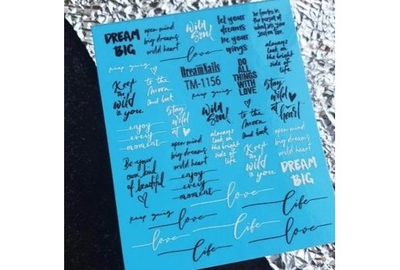 DREAM
BIG
open mind
big dreams
wild heart
Wild
Soul
let your
dreams
be your
wings
love
always
look on
the bright
side of
life
keep going
Keep
the
wild
in you
to the
moon
and back
DreamNails
TM-1156
keep going
Wild
Soul
DO
ALL
THINGS
WITH
LOVE
Stay
wild
at
heart
enjoy
every
moment
Stay
wild
at
always
look on
the bright
side of
life
to the
moon
and back
Be your
own kind
of beautiful
open mind
big dreams
wild heart
Keep
the
wild
in you
open mind
big dreams
wild heart
enjoy
every
moment
DREAM
BIG
keep going
love
love
life
love
life
life
love